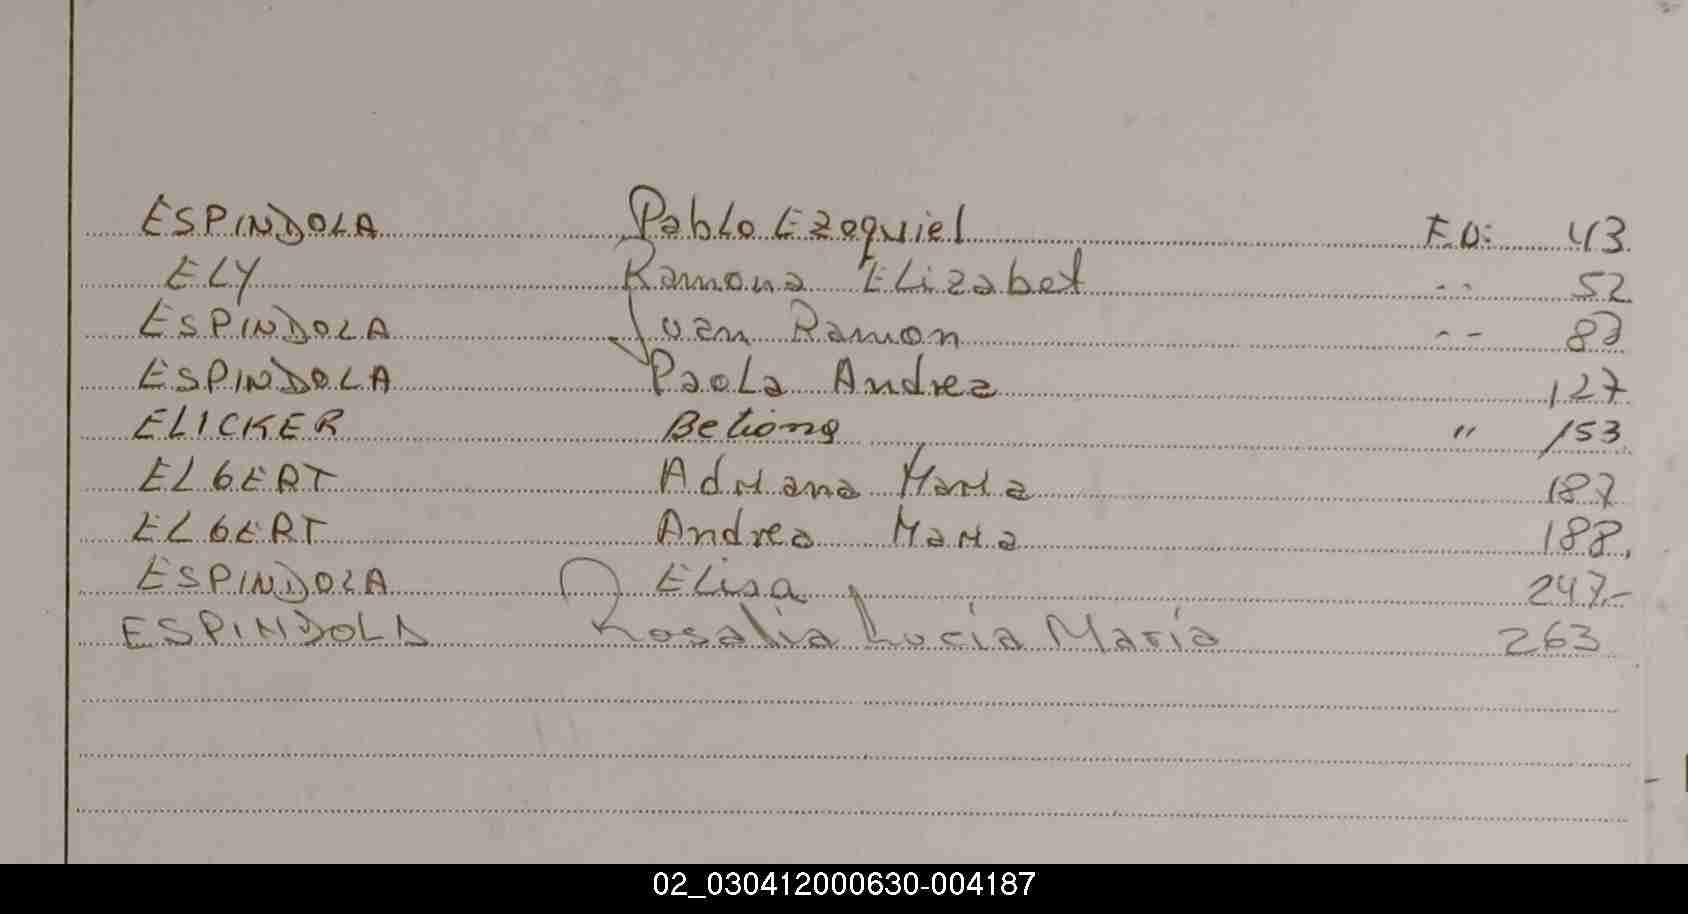 ESPINDOLA Pablo Ezequiel F.O: 43
ELY Ramona Elizabet -- 52
ESPINDOLA Juan Ramon -- 83
ESPINDOLA Paola Andrea 127
ELICKER Betiana " 153
ELGERT Adriana Maria 187
ELGERT Andrea Maria 188.
ESPINDOLA Elisa 247.-
ESPINDOLA Rosalia Lucia Maria 263
02_030412000630-004187